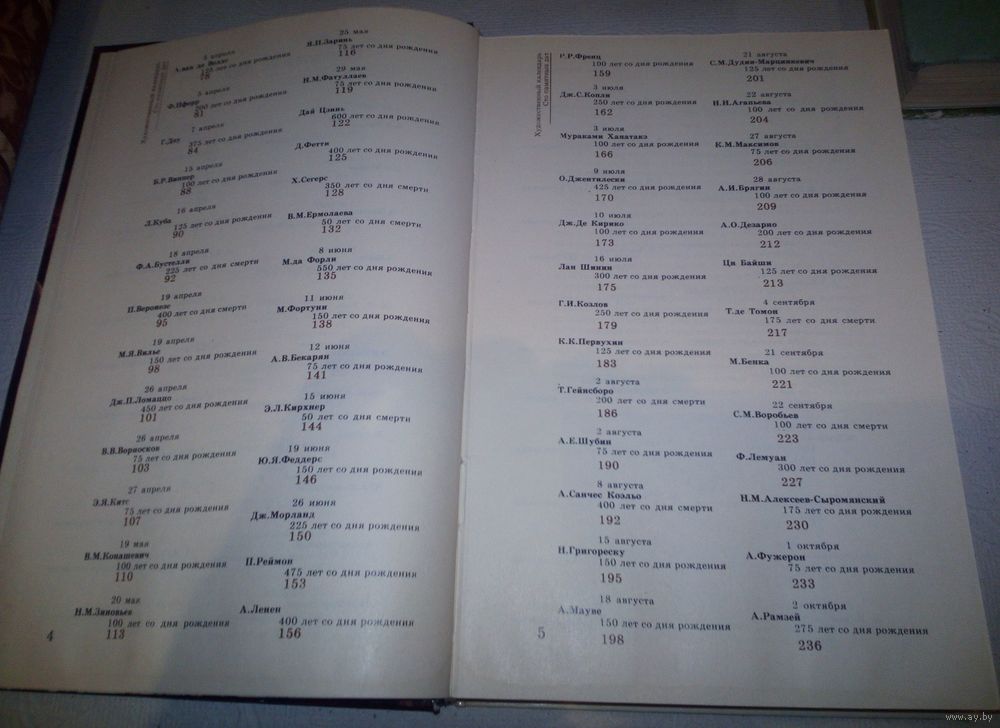 Художественный календарь
Сто памятных дат
3 апреля
А.ван де Велде
78
5 апреля
Ф.Пфорр
200 лет со дня рождения
81
7 апреля
Г.Доу
375 лет со дня рождения
84
15 апреля
Б.Р.Виппер
100 лет со дня рождения
88
16 апреля
Л.Куба
125 лет со дня рождения
90
18 апреля
Ф.А.Бустелли
225 лет со дня смерти
92
19 апреля
П.Веронезе
400 лет со дня смерти
95
19 апреля
М.Я.Вилье
150 лет со дня рождения
98
26 апреля
Дж.П.Ломаццо
450 лет со дня рождения
101
26 апреля
В.В.Ворносков
75 лет со дня рождения
103
27 апреля
Э.Я.Китс
75 лет со дня рождения
107
19 мая
В.М.Конашевич
100 лет со дня рождения
110
20 мая
Н.М.Зиновьев
100 лет со дня рождения
113
4
25 мая
Я.П.Заринь
75 лет со дня рождения
116
29 мая
Н.М.Фатуллаев
75 лет со дня рождения
119
Дай Цзинь
600 лет со дня рождения
122
Д.Фетти
400 лет со дня рождения
125
Х.Сегерс
350 лет со дня смерти
128
В.М.Ермолаева
50 лет со дня смерти
132
8 июня
М.да Форли
550 лет со дня рождения
135
11 июня
М.Фортуни
150 лет со дня рождения
138
12 июня
А.В.Бекарян
75 лет со дня рождения
141
15 июня
Э.Л.Кирхнер
50 лет со дня смерти
144
19 июня
Ю.Я.Феддерс
150 лет со дня рождения
146
26 июня
Дж.Морланд
225 лет со дня рождения
150
П.Реймон
475 лет со дня рождения
153
А.Ленен
400 лет со дня рождения
156
Художественный календарь
Сто памятных дат
Р.Р.Френц
100 лет со дня рождения
159
3 июля
Дж.С.Копли
250 лет со дня рождения
162
3 июля
Мураками Хапатакэ
100 лет со дня рождения
166
9 июля
О.Джентилески
425 лет со дня рождения
170
10 июля
Дж.Де Кирико
100 лет со дня рождения
173
16 июля
Лан Шинин
300 лет со дня рождения
175
Г.И.Козлов
250 лет со дня рождения
179
К.К.Первухин
125 лет со дня рождения
183
2 августа
Т.Гейнсборо
200 лет со дня смерти
186
2 августа
А.Е.Шубин
75 лет со дня рождения
190
8 августа
А.Санчес Коэльо
400 лет со дня смерти
192
15 августа
Н.Григореску
150 лет со дня рождения
195
18 августа
А.Мауве
150 лет со дня рождения
198
5
21 августа
С.М.Дудин-Марцинкевич
125 лет со дня рождения
201
22 августа
И.И.Агапьева
100 лет со дня рождения
204
27 августа
К.М.Максимов
75 лет со дня рождения
206
28 августа
А.И.Брягин
100 лет со дня рождения
209
А.О.Дезарно
200 лет со дня рождения
212
Ци Байши
125 лет со дня рождения
213
4 сентября
Т.де Томон
175 лет со дня смерти
217
21 сентября
М.Бенка
100 лет со дня рождения
221
22 сентября
С.М.Воробьев
100 лет со дня смерти
223
Ф.Лемуан
300 лет со дня рождения
227
Н.М.Алексеев-Сыромянский
175 лет со дня рождения
230
1 октября
А.Фужерон
75 лет со дня рождения
233
2 октября
А.Рамзей
275 лет со дня рождения
236
www.ay.by